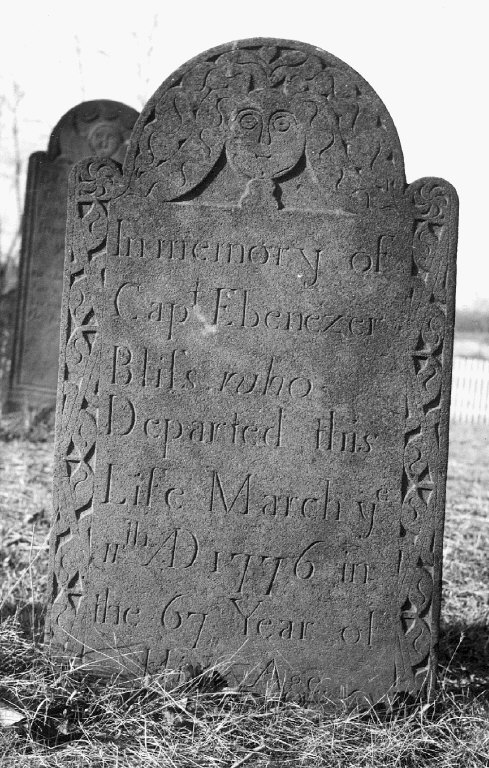 In memory of
Capt Ebenezer
Bliſs who
Departed this
Life March ye
11th AD 1776 in
the 67 Year of
His Age